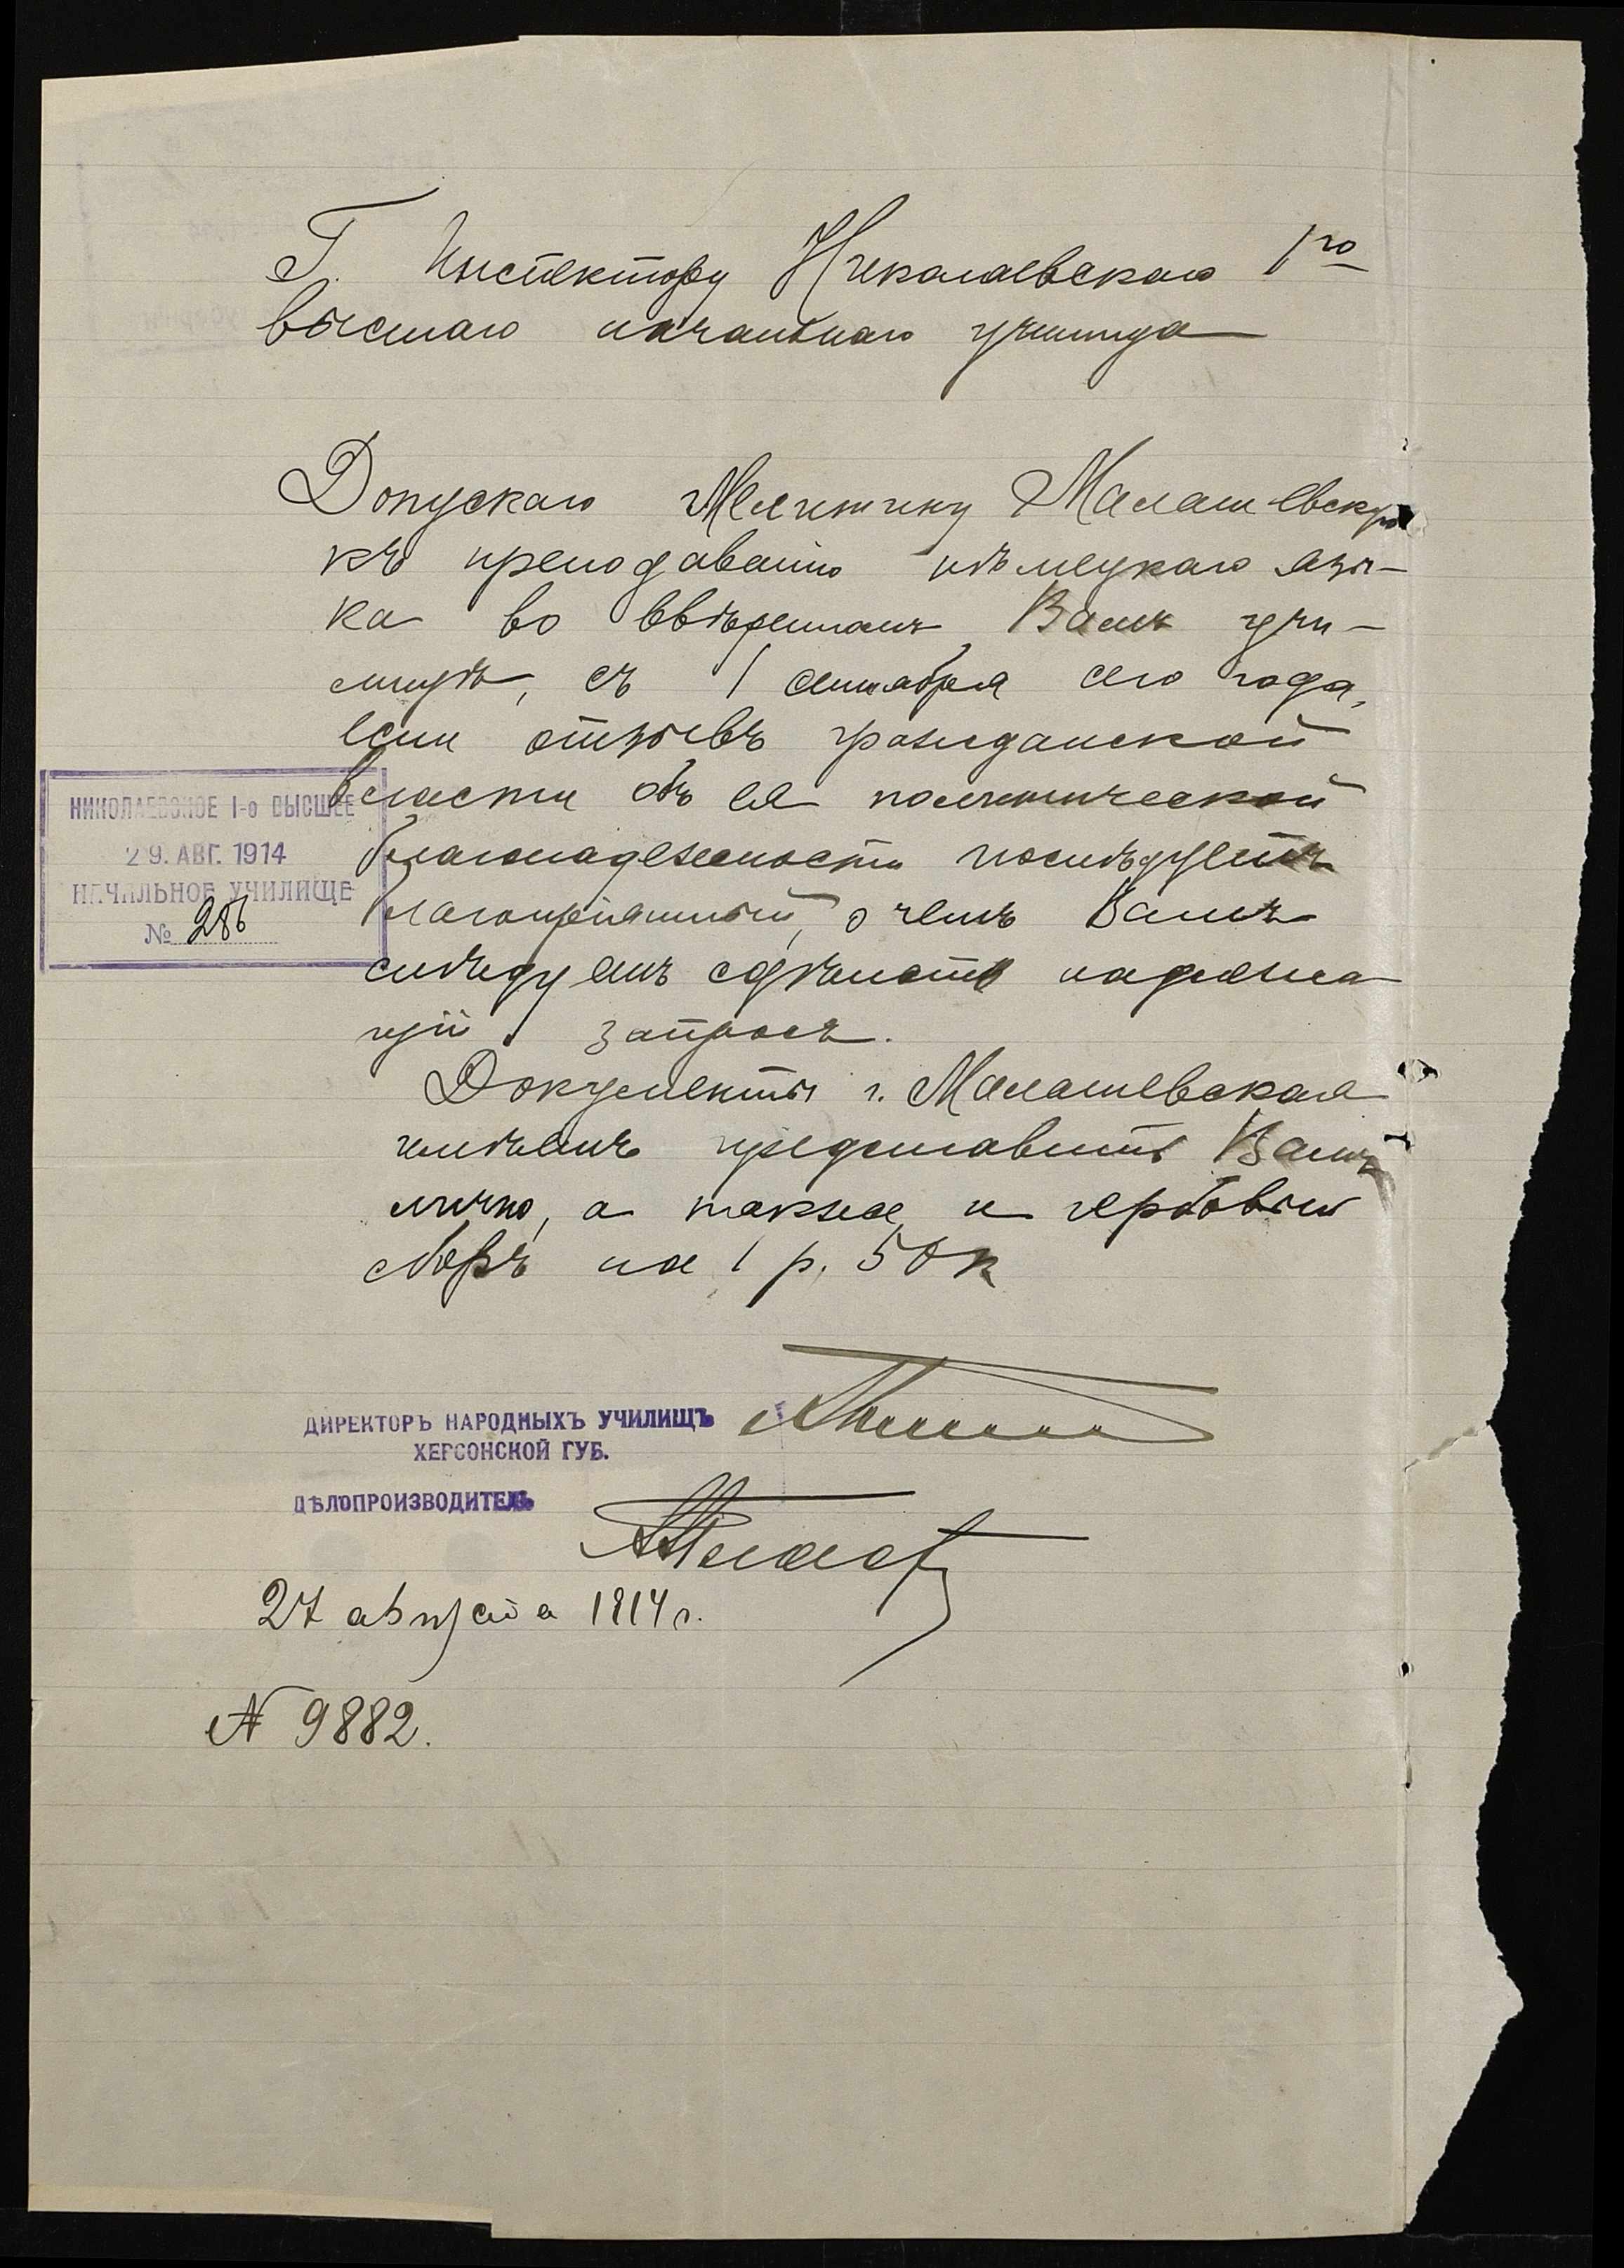 Г. Инспектору Николаевскаго 1го
высшаго начальнаго училища
Допускаю Мелитину Малашевскую
къ преподаванію нѣмецкаго язы-
ка во ввѣренномъ Вамъ учи-
лищѣ, съ 1 сентября сего года,
если отзывъ гражданской
власти объ ея политической
благонадежности послѣдуетъ
благопріятный, о чемъ Вамъ
слѣдуетъ сдѣлать надлежа
щій запросъ.
Документы г. Малашевская
имѣетъ представить Вамъ
лично, а также и гербовый
сборъ на 1 р. 50 к
НИКОЛАЕВСКОЕ I-о ВЫСШЕЕ
29. АВГ. 1914
НАЧАЛЬНОЕ УЧИЛИЩЕ
№ 286
ДИРЕКТОРЪ НАРОДНЫХЪ УЧИЛИЩЪ
ХЕРСОНСКОЙ ГУБ.
ДѢЛОПРОИЗВОДИТЕЛЬ
27 августа 1914 г.
№ 9882.